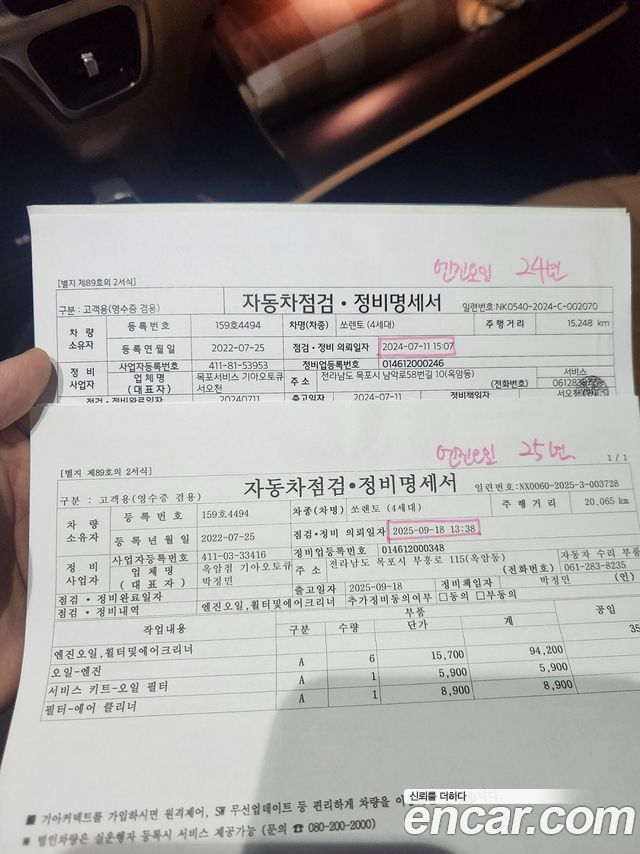 엔진오일 24년
[별지 제89호의 2서식]
구분 : 고객용(영수증 겸용) 자동차점검·정비명세서 일련번호:NK0540-2024-C-002070
차 량 소유자 등록번호 159호4494 차명(차종) 쏘렌토 (4세대) 주행거리 15,248 km
등록연월일 2022-07-25 점검·정비 의뢰일자 2024-07-11 15:07
정 비 사업자 사업자등록번호 411-81-53953 정비업등록번호 014612000246
업체명 (대표자) 목포서비스 기아오토큐 서오천 주 소 전라남도 목포시 남악로58번길 10(옥암동) (전화번호) 서비스
점검·정비완료일자 20240711 출고일자 2024-07-11 정비책임자
엔진오일 25년
1 / 1
[별지 제89호의 2서식]
구분 : 고객용(영수증 겸용) 자동차점검·정비명세서 일련번호:NX0060-2025-3-003728
차 량 소유자 등록번호 159호4494 차명(차종) 쏘렌토 (4세대) 주행거리 20,065 km
등록년월일 2022-07-25 점검·정비 의뢰일자 2025-09-18 13:38
정 비 사업자 사업자등록번호 411-03-33416 정비업등록번호 014612000348
업체명 (대표자) 옥암점 기아오토큐 박정민 주 소 전라남도 목포시 부흥로 115(옥암동) (전화번호) 자동차 수리 부품 061-283-8235
점검·정비완료일자 출고일자 2025-09-18 정비책임자 박정민 (인)
점검·정비내역 엔진오일,휠터및에어크리너 추가정비동의여부 □동의 □부동의
작업내용 구분 수량 부품 단가 계 공임
엔진오일,휠터및에어크리너 35
오일-엔진 A 6 15,700 94,200
서비스 키트-오일 필터 A 1 5,900 5,900
필터-에어 클리너 A 1 8,900 8,900
■ 기아커넥트를 가입하시면 원격제어, SW 무선업데이트 등 편리하게 차량을
■ 법인차량은 실운행자 등록시 서비스 제공가능 (문의 ☎ 080-200-2000)
신뢰를 더하다
encar.com